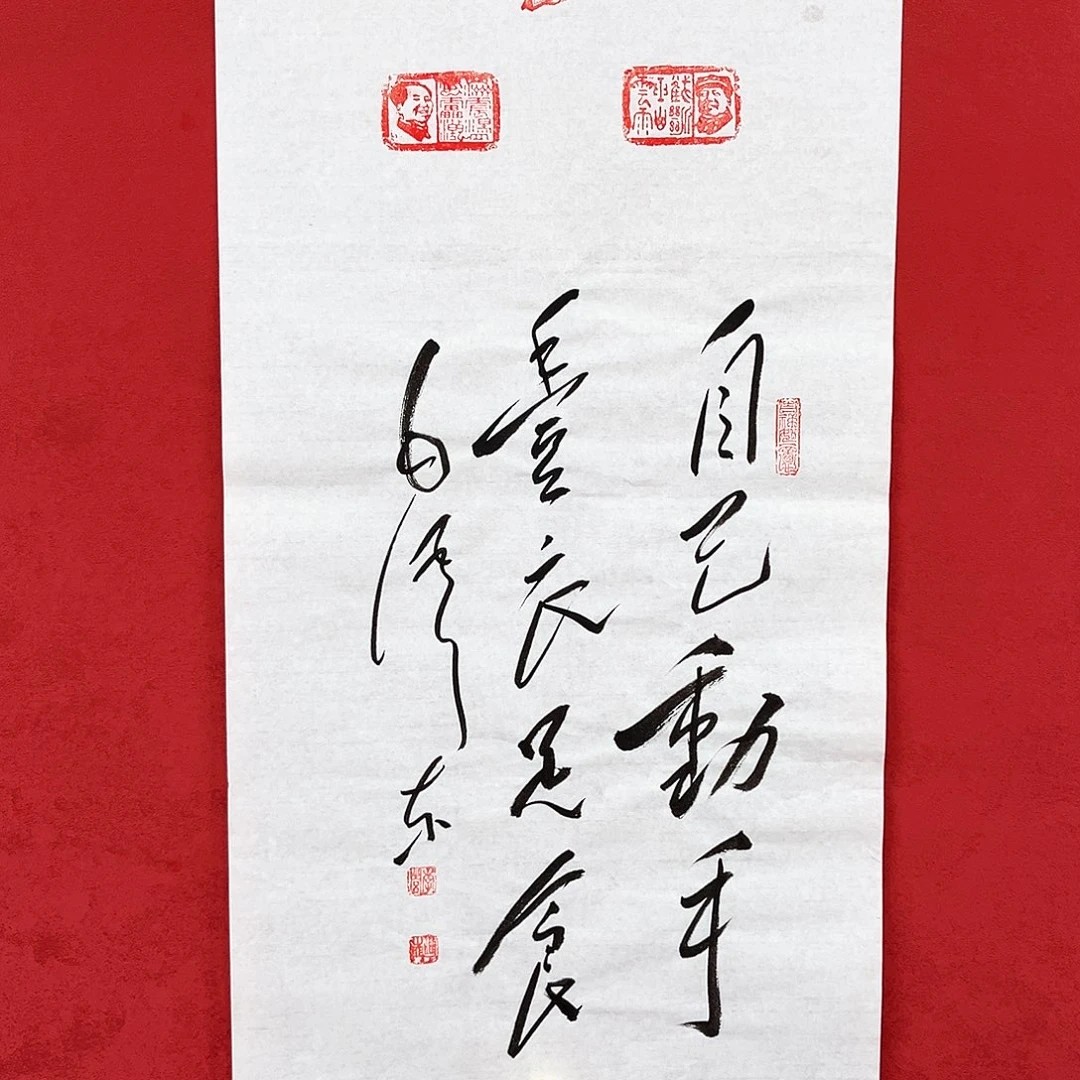 自己動手
豐衣足食
毛澤东